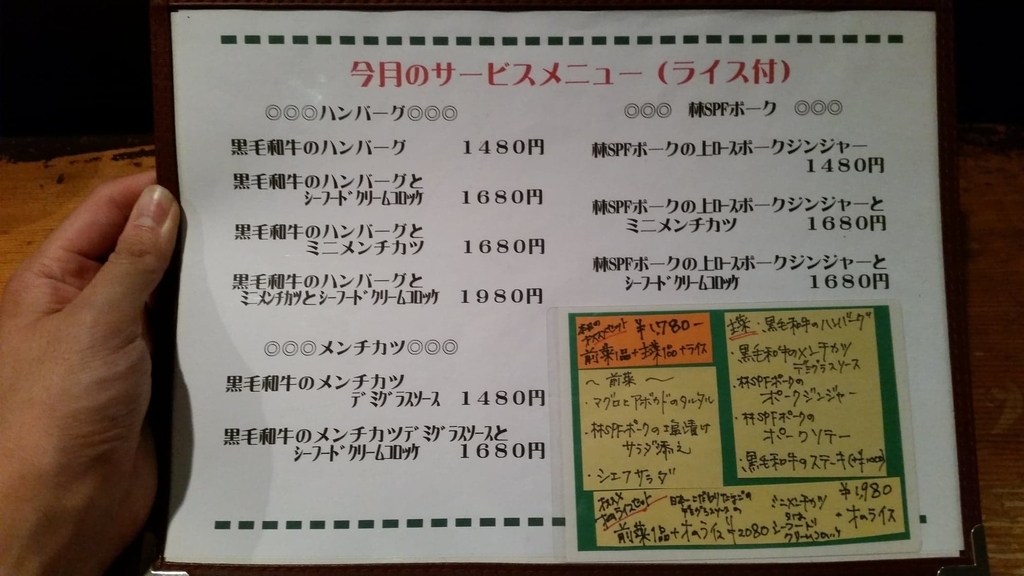 今月のサービスメニュー（ライス付）
◎◎◎ハンバーグ◎◎◎
黒毛和牛のハンバーグ 1480円
黒毛和牛のハンバーグと
シーフードクリームコロッケ 1680円
黒毛和牛のハンバーグと
ミニメンチカツ 1680円
黒毛和牛のハンバーグと
ミニメンチカツとシーフードクリームコロッケ 1980円
◎◎◎メンチカツ◎◎◎
黒毛和牛のメンチカツ
デミグラスソース 1480円
黒毛和牛のメンチカツデミグラスソースと
シーフードクリームコロッケ 1680円
◎◎◎ 林SPFポーク ◎◎◎
林SPFポークの上ロースポークジンジャー
1480円
林SPFポークの上ロースポークジンジャーと
ミニメンチカツ 1680円
林SPFポークの上ロースポークジンジャーと
シーフードクリームコロッケ 1680円
本日の
オススメセット ¥1,780-
前菜1品+主菜1品+ライス
〜 前菜 〜
・マグロとアボカドのタルタル
・林SPFポークの塩漬け
サラダ添え
・シェフサラダ
主菜・黒毛和牛のハンバーグ
・黒毛和牛のメンチカツ
デミグラスソース
・林SPFポークの
ポークジンジャー
・林SPFポークの
ポークソテー
・黒毛和牛のステーキ
オススメ
日本一こだわりたまごの
前菜1品+オムライス ¥2080
ミニメンチカツ
シーフード
クリームコロッケ
¥1,980
オムライス